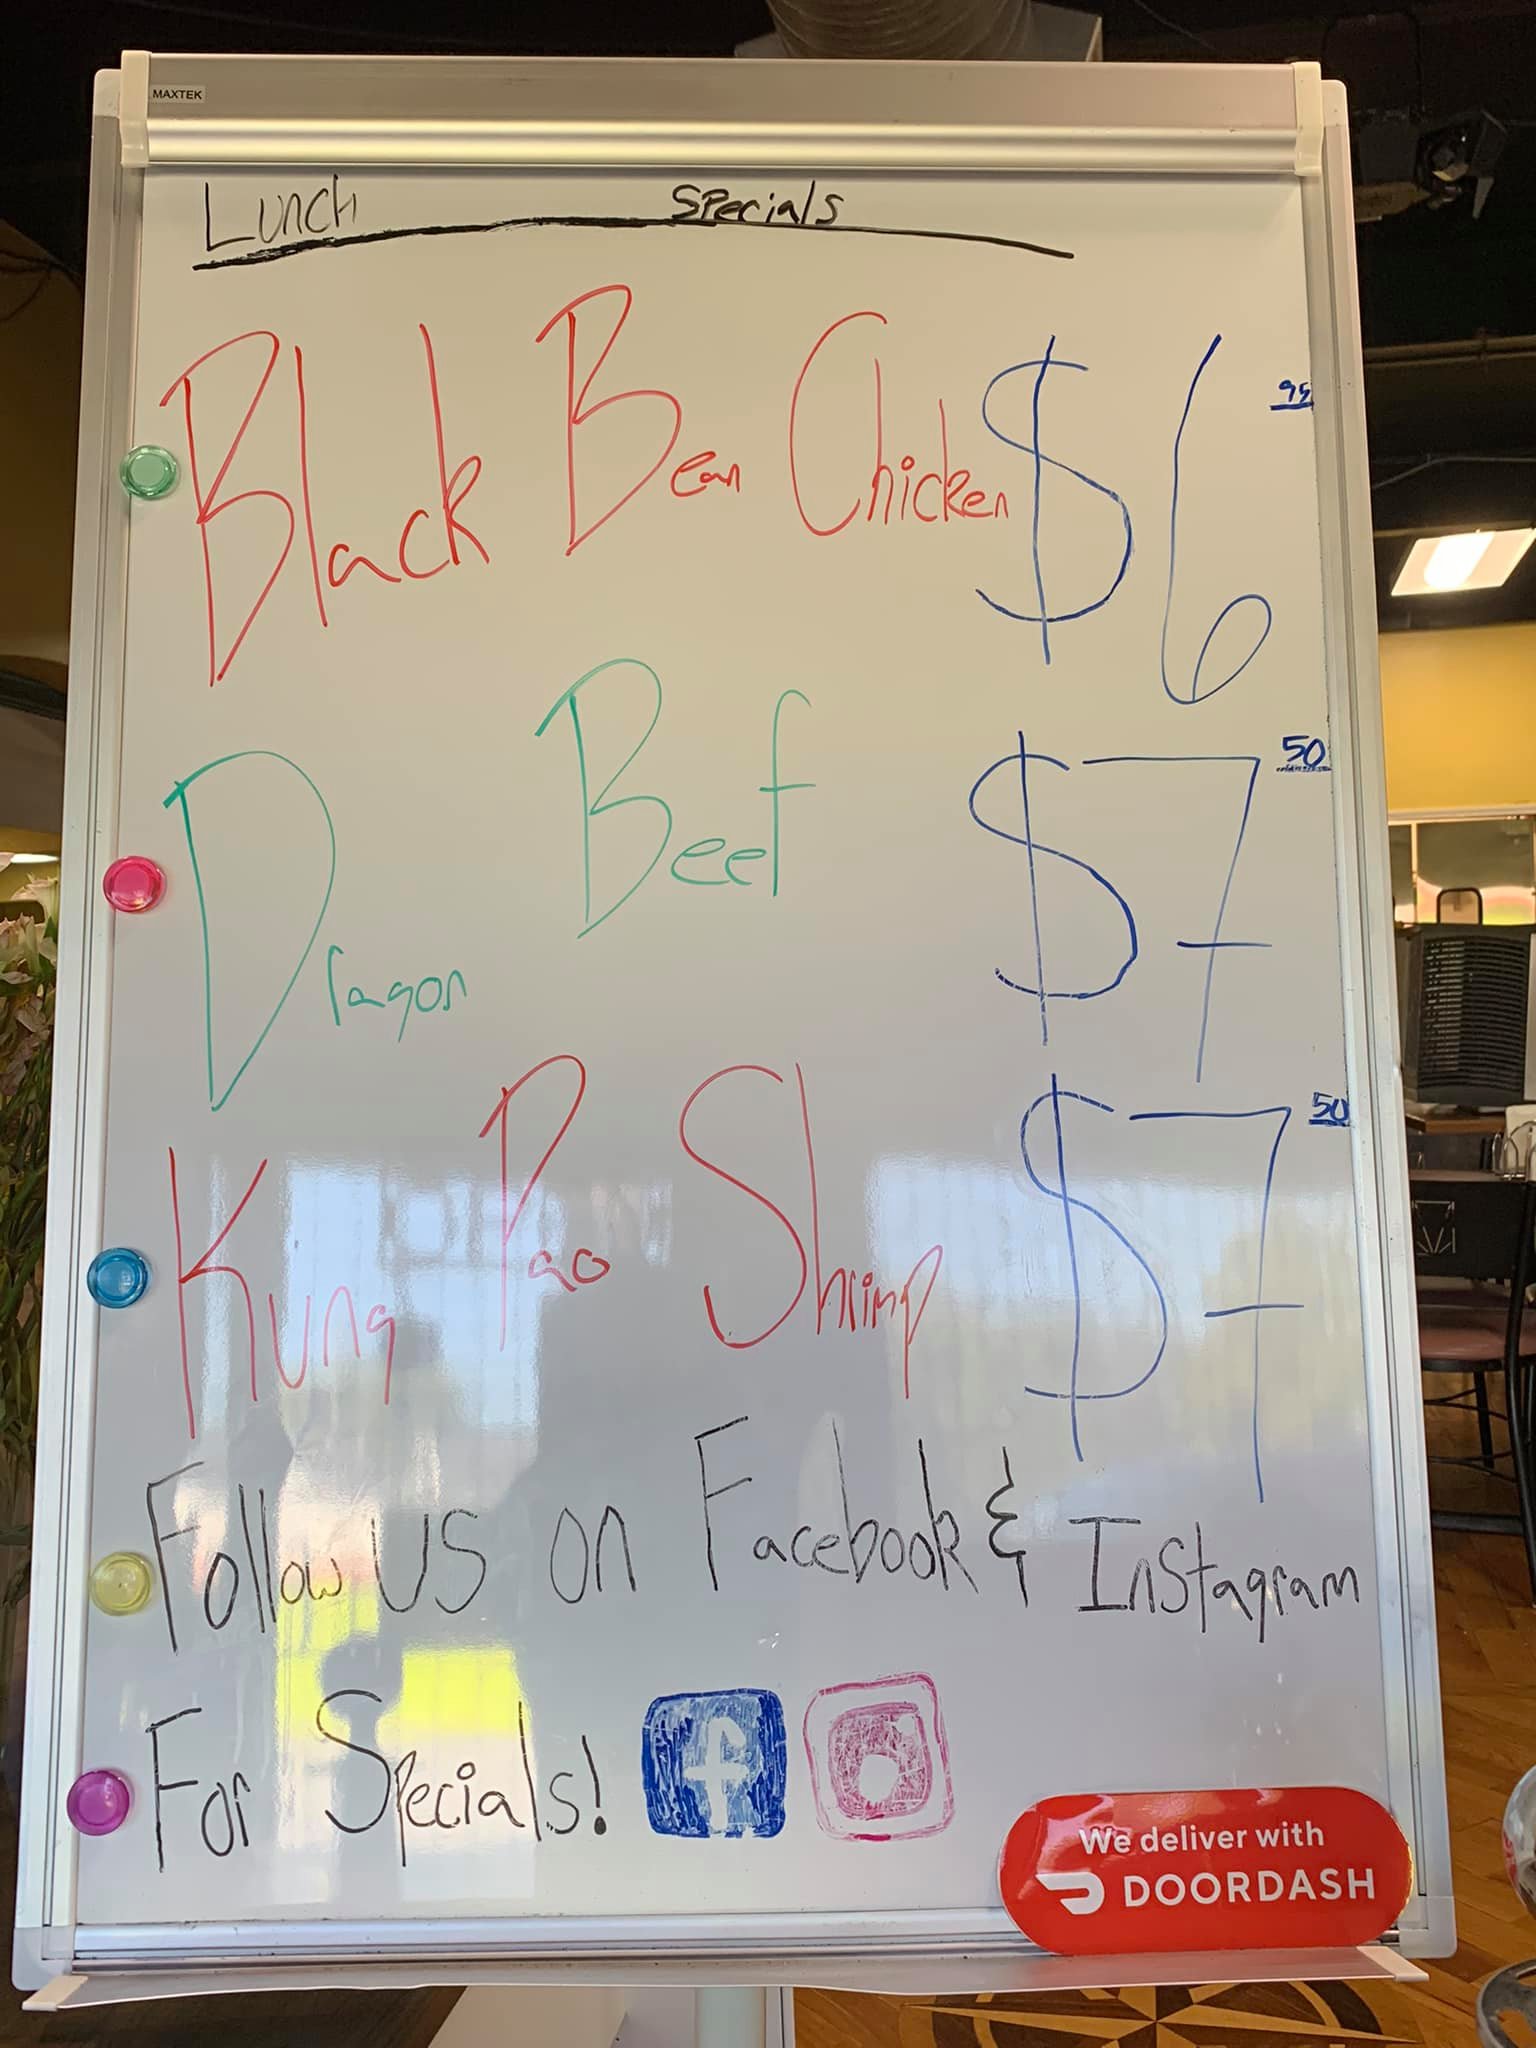 MAXTEK
Lunch Specials
Black Bean Chicken $6 95
Dragon Beef $7 50
Kung Pao Shrimp $7 50
Follow us on Facebook & Instagram
For Specials!
We deliver with
DOORDASH